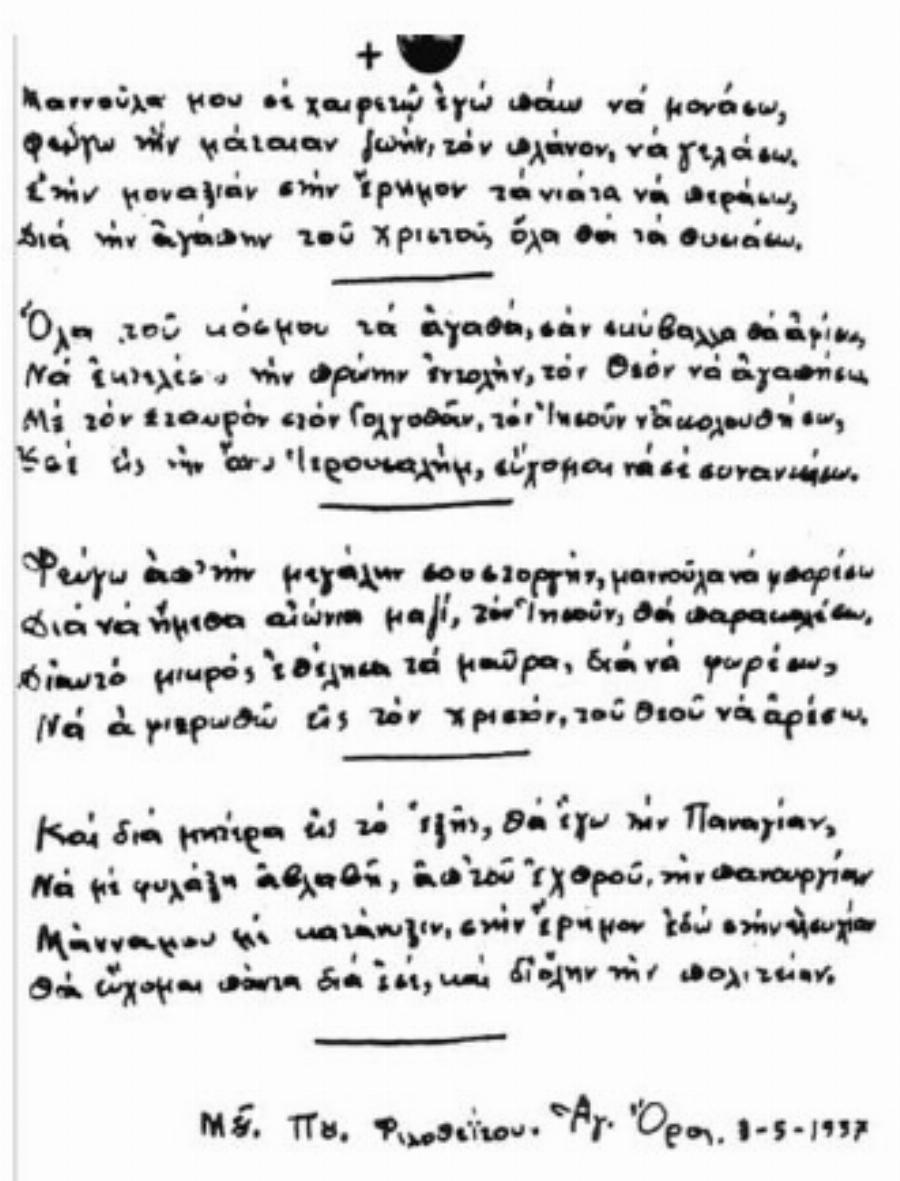 +
Μαννοῦλα μου σέ χαιρετῷ ἐγώ πάω νά μονάσω,
Φεύγω τήν μάταιαν ζωήν, τόν πλάνον, νά γελάσω.
Στήν μοναξιάν στήν ἔρημον τά νιάτα νά περάσω,
Διά τήν ἀγάπην τοῦ Χριστοῦ, ὅλα θά τά θυσιάσω.
Ὅλα τοῦ κόσμου τά ἀγαθά, σάν σκύβαλλα θά ἀφίσω,
Νά ἐκτελέσω τήν πρώτην ἐντολήν, τόν Θεόν νά ἀγαπήσω,
Μέ τόν Σταυρόν στόν Γολγοθᾶν, τόν Ἰησοῦν νἀκολουθήσω,
Καί εἰς τήν ἄνω Ἱερουσαλήμ, εὔχομαι νά σέ συναντήσω.
Φεύγω ἀπ' τήν μεγάλην σου στοργήν, μαννοῦλα νά μπορέσω
Διά νά ἤμεθα αἰώνια μαζί, τόν Ἰησοῦν, θά παρακαλέσω,
Διαυτό μικρός, ἐθέλησα τά μαῦρα, διά νά φορέσω,
Νά ἀφιερωθῶ εἰς τόν Χριστόν, τοῦ Θεοῦ νά ἀρέσω.
Καί διά μητέρα εἰς τό ἑξῆς, θά ἔχω τήν Παναγίαν,
Νά μέ φυλάξη ἀβλαβῆ, ἀπ' τοῦ ἐχθροῦ, τήν πανουργίαν
Μάννα μου μέ κατάνυξιν, στήν ἔρημον ἐδῶ στήν ἡσυχίαν
Θά εὔχομαι πάντα διά ἐσέ, καί δι' ὅλην τήν πολιτείαν.
Φιλοθεΐτου. Ἁγ. Ὄρος. -5-1937